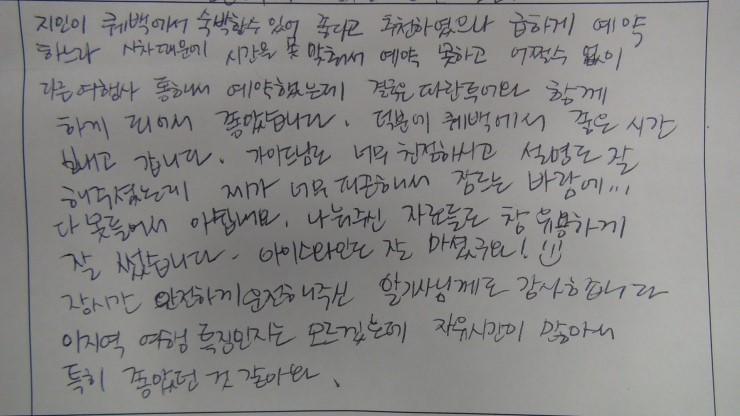 지인이 퀘백에서 숙박할수 있어 좋다고 추천하였으나 급하게 예약
하느라 시차때문에 시간을 못 맞춰서 예약 못하고 어쩔수 없이
다른여행사 통해서 예약했는데 결국은 파란투어와 함께
하게 되어서 좋았습니다. 덕분에 퀘백에서 좋은 시간
보내고 갑니다. 가이드님도 너무 친절하시고 설명도 잘
해주셨는데 제가 너무 피곤해서 잠드는 바람에...
다 못들어서 아쉽네요. 나눠주신 자료들도 참 유용하게
잘 썼습니다. 아이스와인도 잘 마셨구요! ☺
장시간 안전하게 운전해주신 알기사님께도 감사합니다
이지역 여행 특징인지는 모르겠는데 자유시간이 많아서
특히 좋았던 것 같아요.